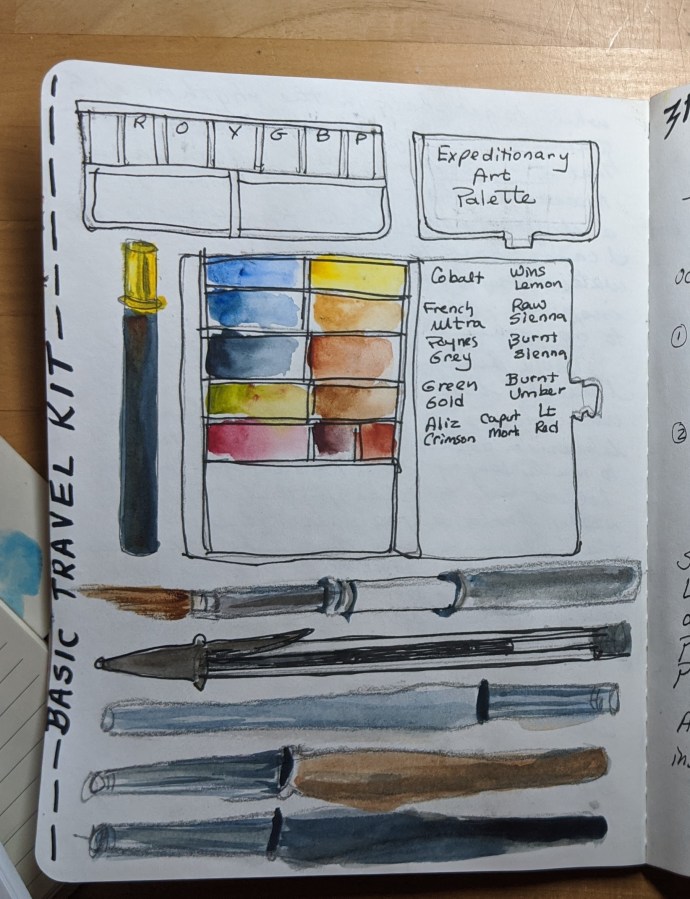 BASIC TRAVEL KIT
R O Y G B P
Expeditionary
Art
Palette
Cobalt
Wins
Lemon
French
ultra
Raw
Sienna
Paynes
Grey
Burnt
Sienna
Green
Gold
Burnt
Umber
Aliz
Crimson
Caput
Mort
Lt
Red
31
1
2